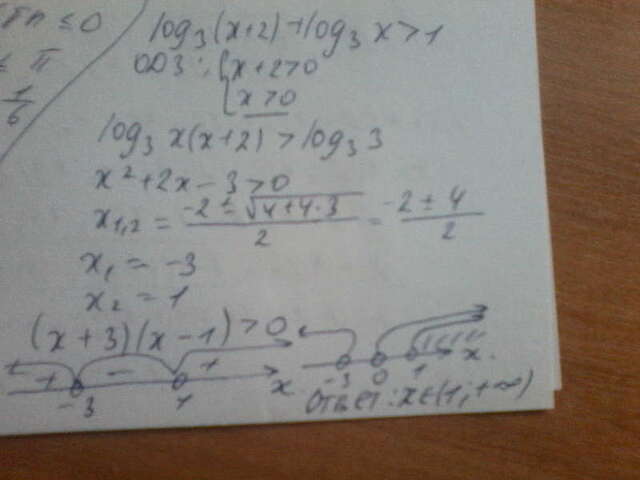 ≤ 0
π
1/6
log₃(x+2)+log₃ x>1
ОДЗ: {x+2>0
{x>0
log₃ x(x+2) > log₃ 3
x²+2x-3>0
x₁,₂ = (-2 ± √(4+4·3))/2 = (-2 ± 4)/2
x₁ = -3
x₂ = 1
(x+3)(x-1)>0
+ - + x
-3 1
-3 0 1 x
Ответ: x∈(1;+∞)